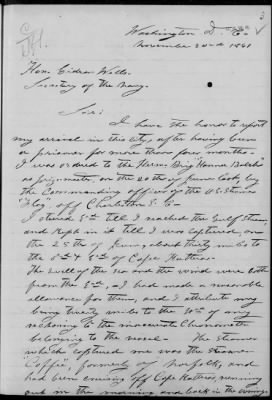 Washington D. C.
November 20th 1861
Hon. Gideon Welles.
Secretary of the Navy.
Sir:
I have the honor to report
my arrival in this City, after having been
a prisoner for more than four months.
I was ordered to the Herm. Brig "Hannah Balch"
as prize master, on the 20th of June last, by
the Commanding officer of the U.S. Steamer
"Flag" off Charleston S. C.
I steered Ed. till I reached the Gulf Stream
and kept in it till I was captured, on
the 25th of June, about thirty miles to
the Sd & Ed of Cape Hatteras.
The swell of the sea and the wind were both
from the Ed, I had made a reasonable
allowance for them, and I attribute my
being twenty miles to the Wd of my
reckoning to the inaccurate Chronometer
belonging to the vessel. The Steamer
which captured me was the Steamer
"Coffee", formerly of Norfolk, and
had been cruising off Cape Hatteras, running
out in the morning and back in the evening